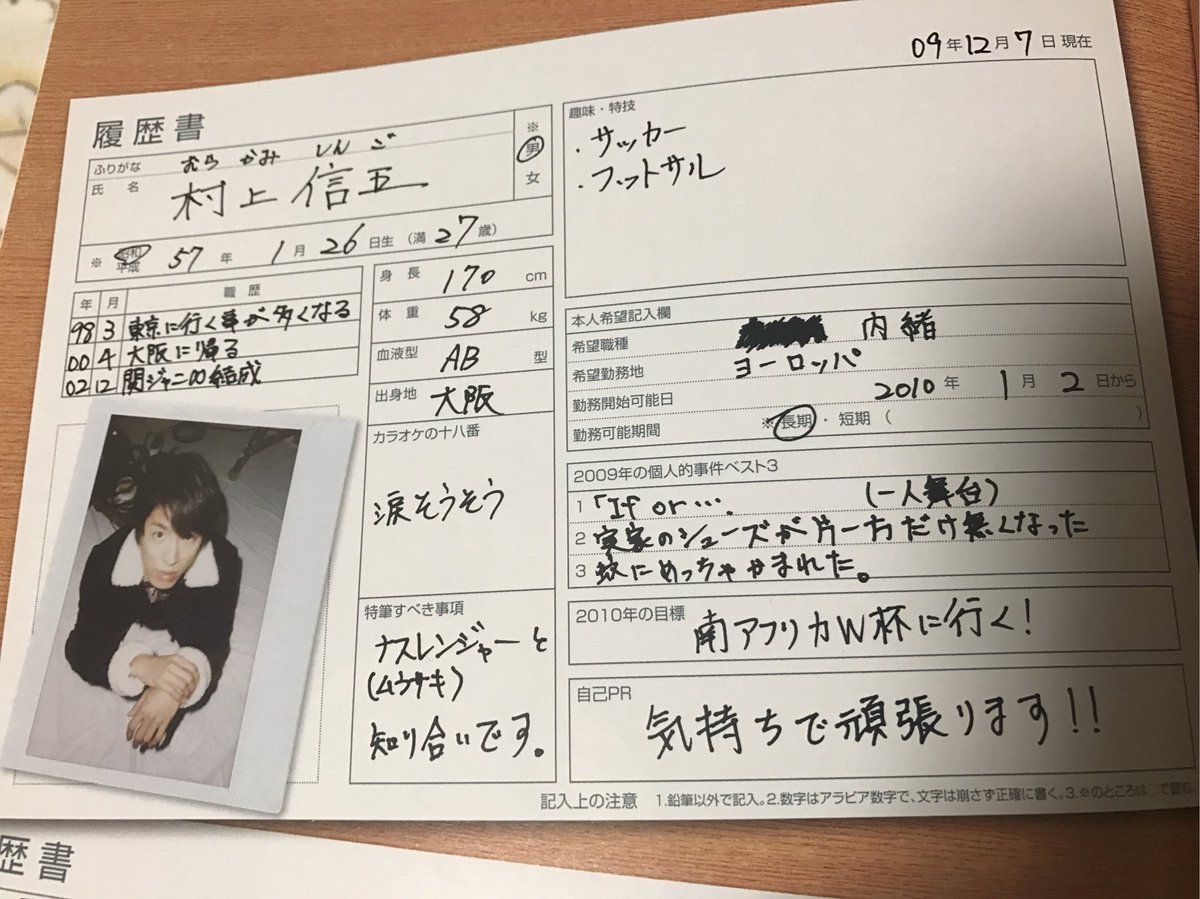 09年12月7日現在
履歴書
ふりがな むら かみ しん ご
氏名 村上信五
※ 男 女
※ 昭和 平成 57年 1月 26日生(満27歳)
年 月 職歴
98 3 東京に行く事が多くなる
00 4 大阪に帰る
02 12 関ジャニ∞結成
身長 170 cm
体重 58 kg
血液型 AB 型
出身地 大阪
カラオケの十八番
涙そうそう
特筆すべき事項
ナスレンジャーと
(ムラサキ)
知り合いです。
趣味・特技
・サッカー
・フットサル
本人希望記入欄
希望職種 内緒
希望勤務地 ヨーロッパ
勤務開始可能日 2010年 1月 2日から
勤務可能期間 ※長期・短期( )
2009年の個人的事件ベスト3
1 「If or… (一人舞台)
2 実家のシューズが片一方だけ無くなった
3 蚊にめっちゃかまれた。
2010年の目標
南アフリカW杯に行く!
自己PR
気持ちで頑張ります!!
記入上の注意 1.鉛筆以外で記入。2.数字はアラビア数字で、文字は崩さず正確に書く。3.※のところは○で囲む。
歴書